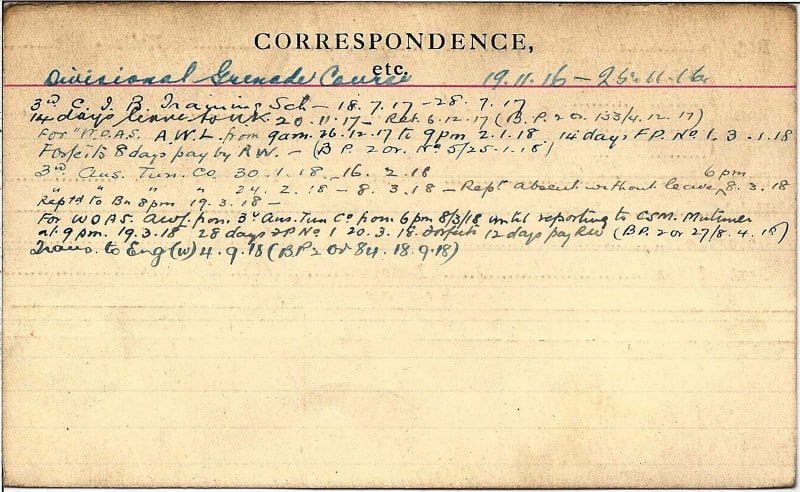 CORRESPONDENCE,
etc.
Divisional Grenade Course 19.11.16 - 26.11.16
3rd C. I. B. Training Sch - 18.7.17 - 28.7.17
14 days leave to UK 20.11.17 - Ret. 6.12.17 (B.P.2 or. 133/4.12.17)
For "W.O.A.S. A.W.L. from 9am. 26.12.17 to 9pm 2.1.18 14 days F.P. No. 1, 3.1.18
Forfeits 8 days pay by R.W. - (B P. 2 or. No 5/25.1.18)
3rd Aus. Tun. Co. 30.1.18. 16.2.18
" " " " 24.2.18 - 8.3.18 - Rept absent without leave 6pm 8.3.18
Reptd to Bn 8pm 19.3.18 -
For W O A S. awl. from 3rd Aus. Tun Co from 6pm 8/3/18 until reporting to CSM. Mutimer
at 9 pm. 19.3.18 28 days FP No 1 20.3.18. Forfeits 12 days pay RW (B.P. 2 or 27/8.4.18)
Trans. to Eng (W) 4.9.18 (B P 2 Or 84.18.9.18)